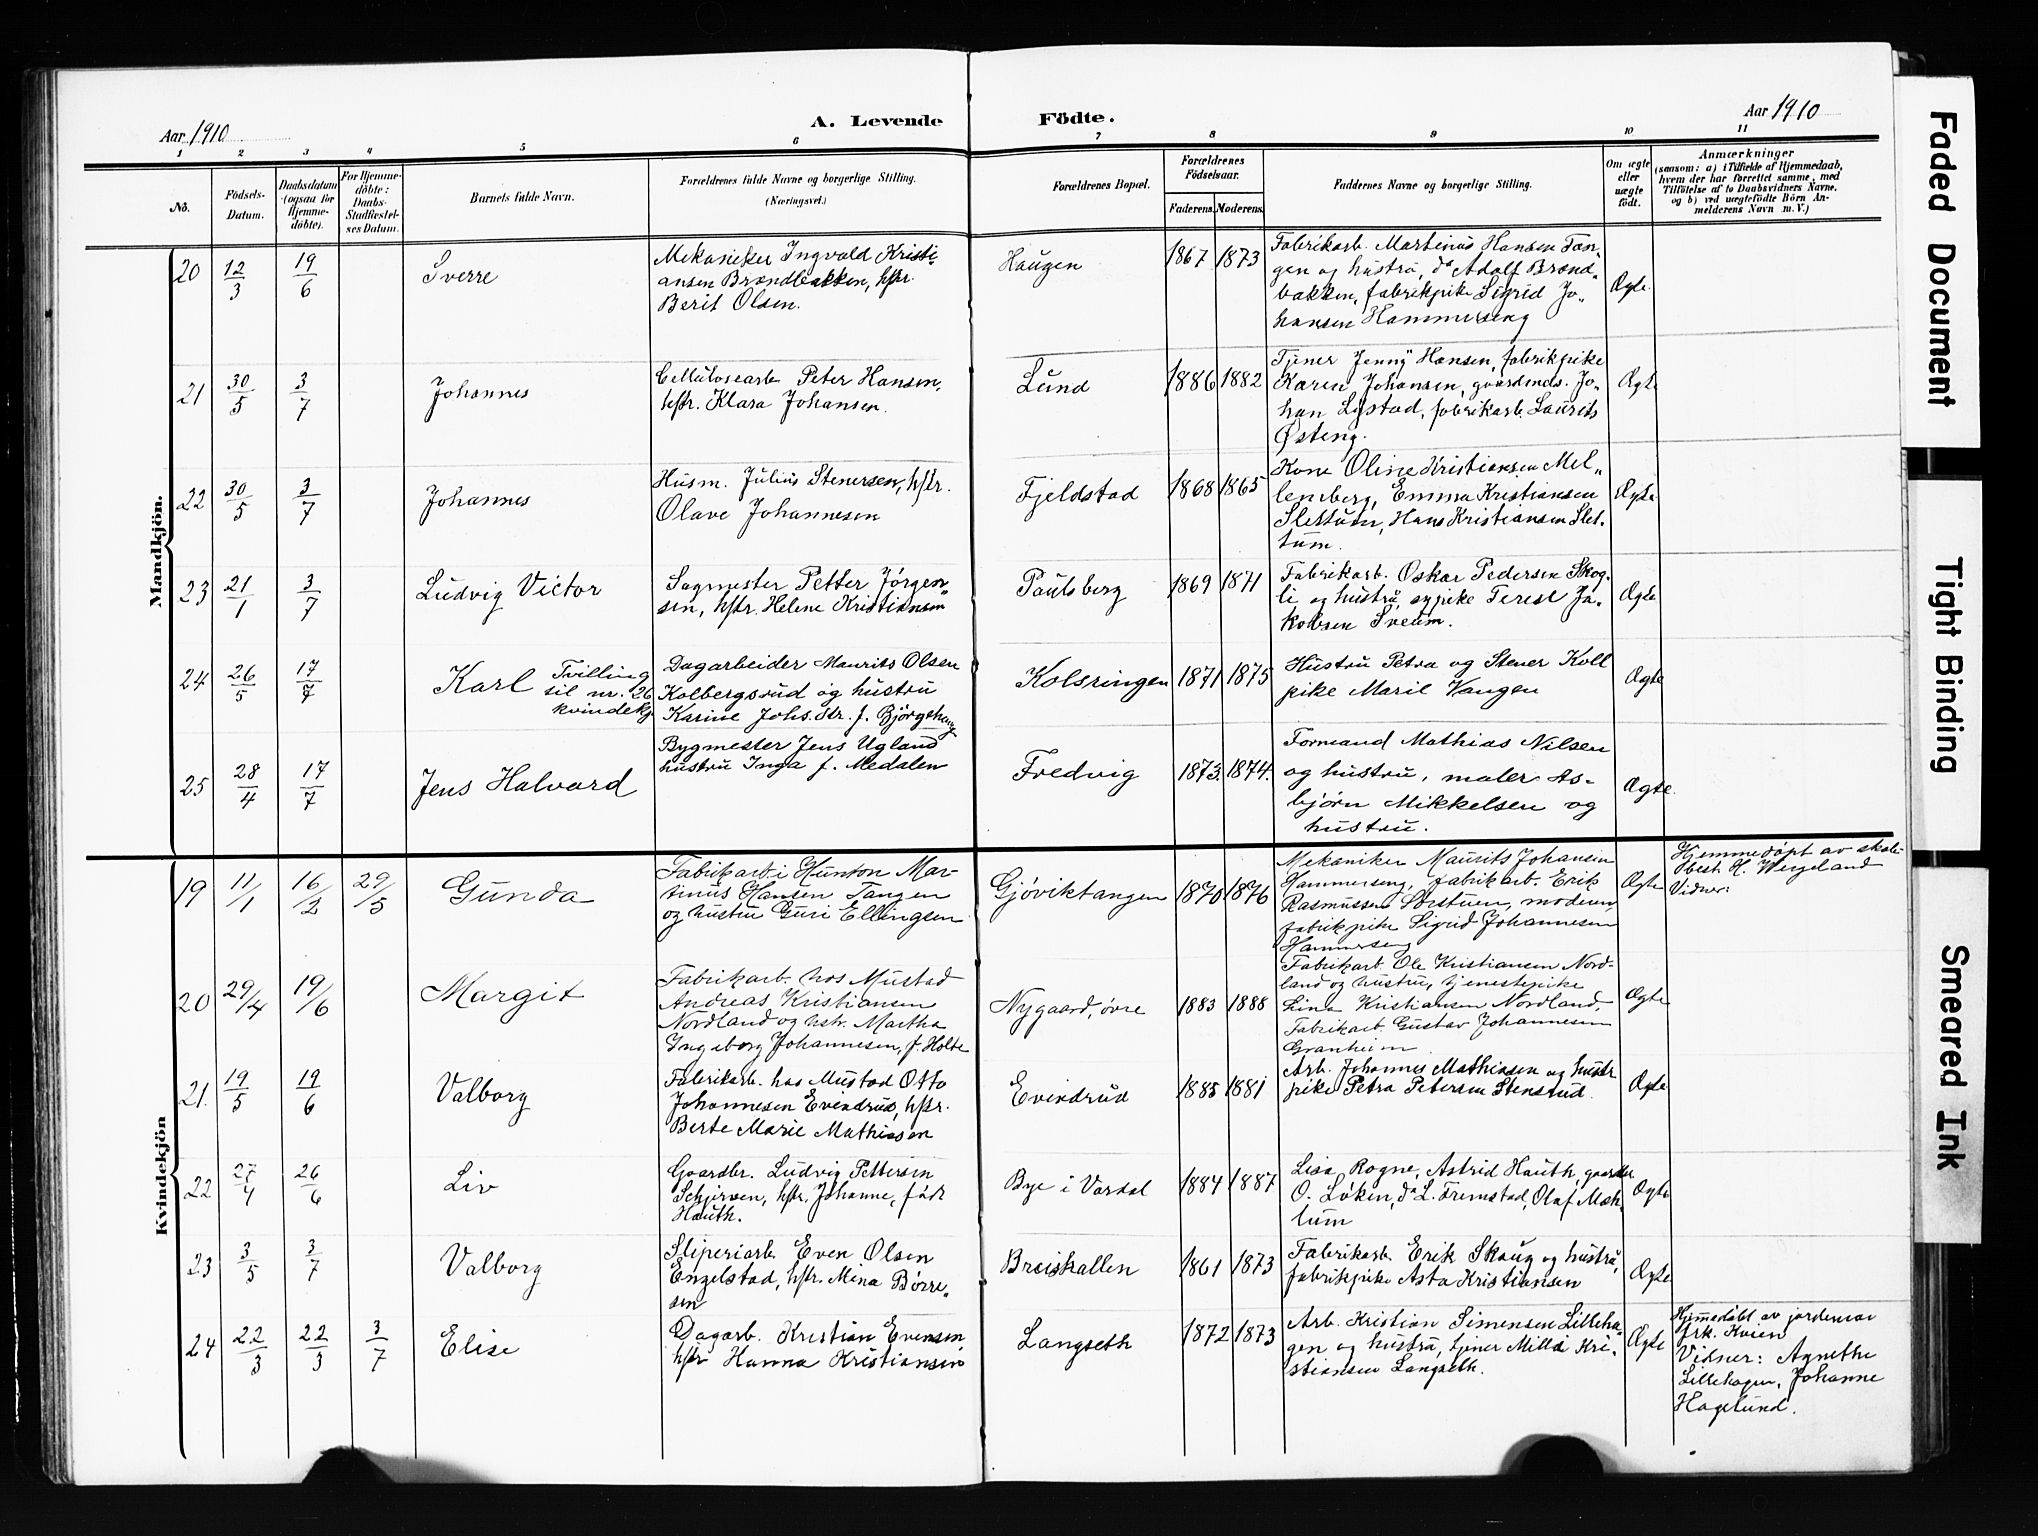 Aar 1910
A. Levende Fødte.
Aar 1910
1 2 3 4 5 6 7 8 9 10 11
No.
Fødsels-
Datum.
Daabsdatum
(ogsaa for
Hjemme-
døbte).
For Hjemme-
døbte:
Daabs-
Stadfæstel-
ses Datum.
Barnets fulde Navn.
Forældrenes fulde Navne og borgerlige Stilling.
(Næringsvei.)
Forældrenes Bopæl.
Forældrenes
Fødselsaar.
Faderens. Moderens.
Faddernes Navne og borgerlige Stilling.
Om ægte
eller
uægte
født.
Anmærkninger
(saasom: a) i Tilfælde af Hjemmedaab,
hvem der har forrettet samme, med
Tilføielse af to Daabsvidners Navne,
og b) ved uægtefødte Børn An-
melderens Navn m. V.)
Mandkjön.
20 12/3 19/6 Sverre
Mekaniker Ingvald Kristi-
ansen Brændbakken, hstr.
Berit Olsen.
Haugen 1867 1873
Fabrikarb. Martinus Hansen Tan-
gen og hustru, do Adolf Brænd-
bakken, fabrikpike Sigrid Jo-
hansen Hammerseng
Ægte
21 30/5 3/7 Johannes
Cellulosearb. Peter Hansen,
hstr. Klara Johansen.
Lund 1886 1882
Tjener Jenny Hansen, fabrikpike
Karen Johansen, gaardmds. Jo-
han Lystad, fabrikarb. Laurits
Østeng.
Ægte
22 30/5 3/7 Johannes
Husm. Julius Stenersen, hstr.
Olave Johannesen
Fjeldstad 1868 1865
Kone Oline Kristiansen Mel-
lemberg, Emma Kristiansen
Slettum, Hans Kristiansen Slet-
tum.
Ægte
23 21/1 3/7 Ludvig Victor
Sagmester Petter Jørgen-
sen, hstr. Helene Kristiansen
Paulsberg 1869 1871
Fabrikarb. Oskar Pedersen Skog-
li og hustru, sypike Terese Ja-
kobsen Sveum.
Ægte
24 26/5 17/7 Karl Tvilling
til nr. 26
kvindekj
Dagarbeider Maurits Olsen
Kolbergsrud og hustru
Karine Johs.dtr. f. Bjørgehaug
Kolsringen 1871 1875
Hustru Petra og Stener Koll
pike Marie Vangen
Ægte
25 28/4 17/7 Jens Halvard
Bygmester Jens Ugland
hustru Inga f. Medalen
Fredvig 1873. 1874.
Formand Mathias Nilsen
og hustru, maler As-
bjørn Mikkelsen og
hustru.
Ægte.
Kvindekjön
19 11/1 16/2 29/5 Gunda
Fabrikarb. i Hunton Mar-
tinus Hansen Tangen
og hustru Guri Ellingsen
Gjøviktangen 1870 1876
Mekaniker Maurits Johansen
Hammerseng, fabrikarb. Erik
Rasmussen Sørstuen, moderen,
fabrikpike Sigrid Johannesen
Hammerseng
Ægte
Hjemmedøpt av skole-
best. H. Wergeland
Vidner:
20 29/4 19/6 Margit
Fabrikarb. hos Mustad
Andreas Kristiansen
Nordland og hstr. Martha
Ingeborg Johannesen, f. Holte
Nygaard, øvre 1883 1888
Fabrikarb. Ole Kristiansen Nord-
land og hustru, tjenestepike
Lina Kristiansen Nordland,
Fabrikarb. Gustav Johannesen
Granheim
Ægte
21. 19/5 19/6 Valborg
Fabrikarb. hos Mustad Otto
Johannesen Evindrud, hstr.
Berte Marie Mathiesen
Evindrud 1885 1881
Arb. Johannes Mathisen og hustr
pike Petra Petersen Stensrud.
Ægte
22 27/4 26/6 Liv
Gaardbr. Ludvig Pettersen
Schjerven, hstr. Johanne, født
Hauth.
Bye i Vardal 1884 1887
Lisa Rogne, Astrid Hauth, gaardbr
O. Løken, do L. Fremstad, Olaf Mæh-
lum
Ægte
23 3/5 3/7 Valborg
Sliperiarb. Even Olsen
Engelstad, hstr. Mina Børre-
sen
Breiskallen 1861 1873
Fabrikarb. Erik Skaug og hustru,
fabrikpike Asta Kristiansen
Ægte
24 22/3 22/3 3/7 Elise
Dagarb. Kristian Evensen
hstr Hanna Kristiansen
Langseth 1872 1873
Arb. Kristian Simensen Lilleha-
gen og hustru, tjener Milla Kri-
stiansen Langseth.
Ægte
Hjemmedøbt av jordemor
frk. Kvien
Vidner: Agnethe
Lillehagen, Johanne
Hagelund.
Faded Document
Tight Binding
Smeared Ink